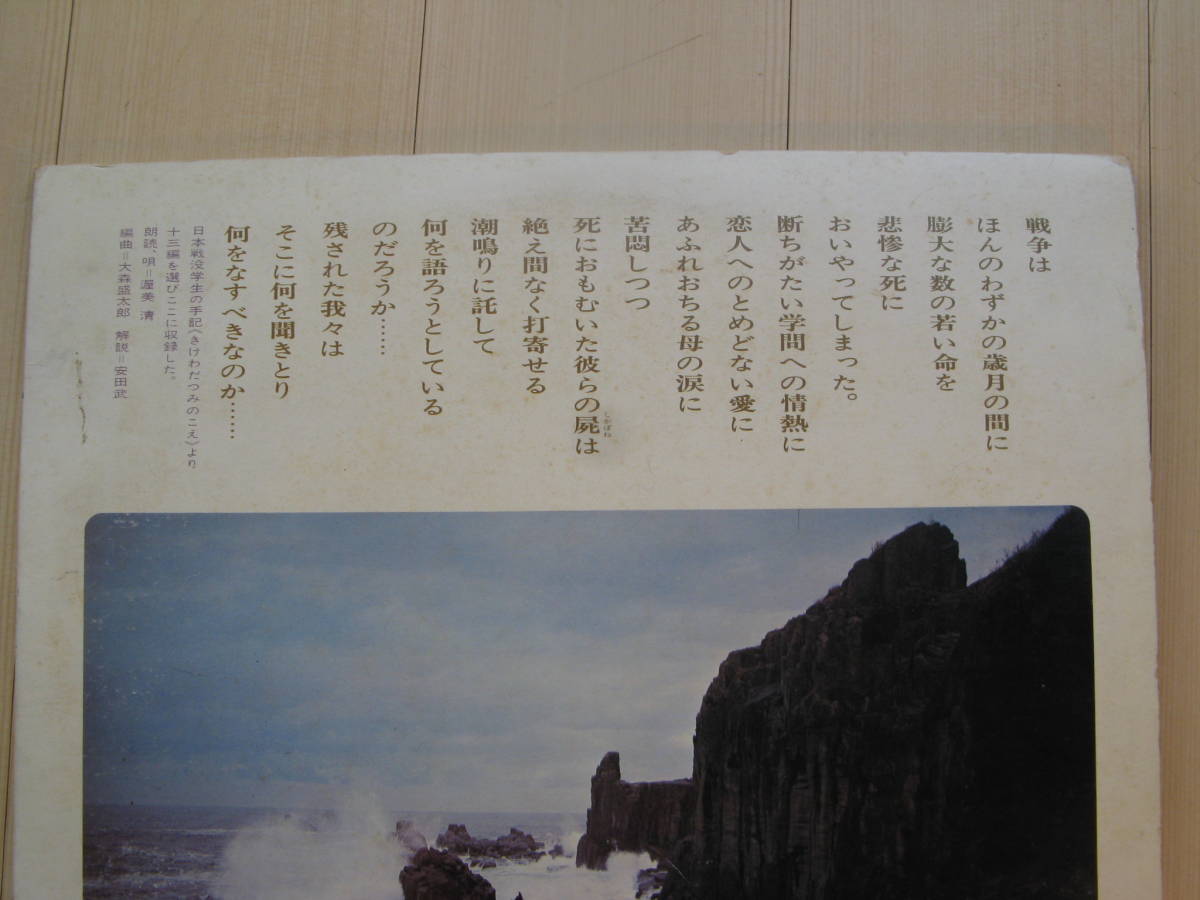 戦争は
ほんのわずかの歳月の間に
膨大な数の若い命を
悲惨な死に
おいやってしまった。
断ちがたい学問への情熱に
恋人へのとめどない愛に
あふれおちる母の涙に
苦悶しつつ
死におもむいた彼らの屍は
しかばね
絶え間なく打寄せる
潮鳴りに託して
何を語ろうとしている
のだろうか……
残された我々は
そこに何を聞きとり
何をなすべきなのか……
日本戦没学生の手記《きけわだつみのこえ》より
十三編を選びここに収録した。
朗読、唄＝渥美 清
編曲＝大森盛太郎 解説＝安田武